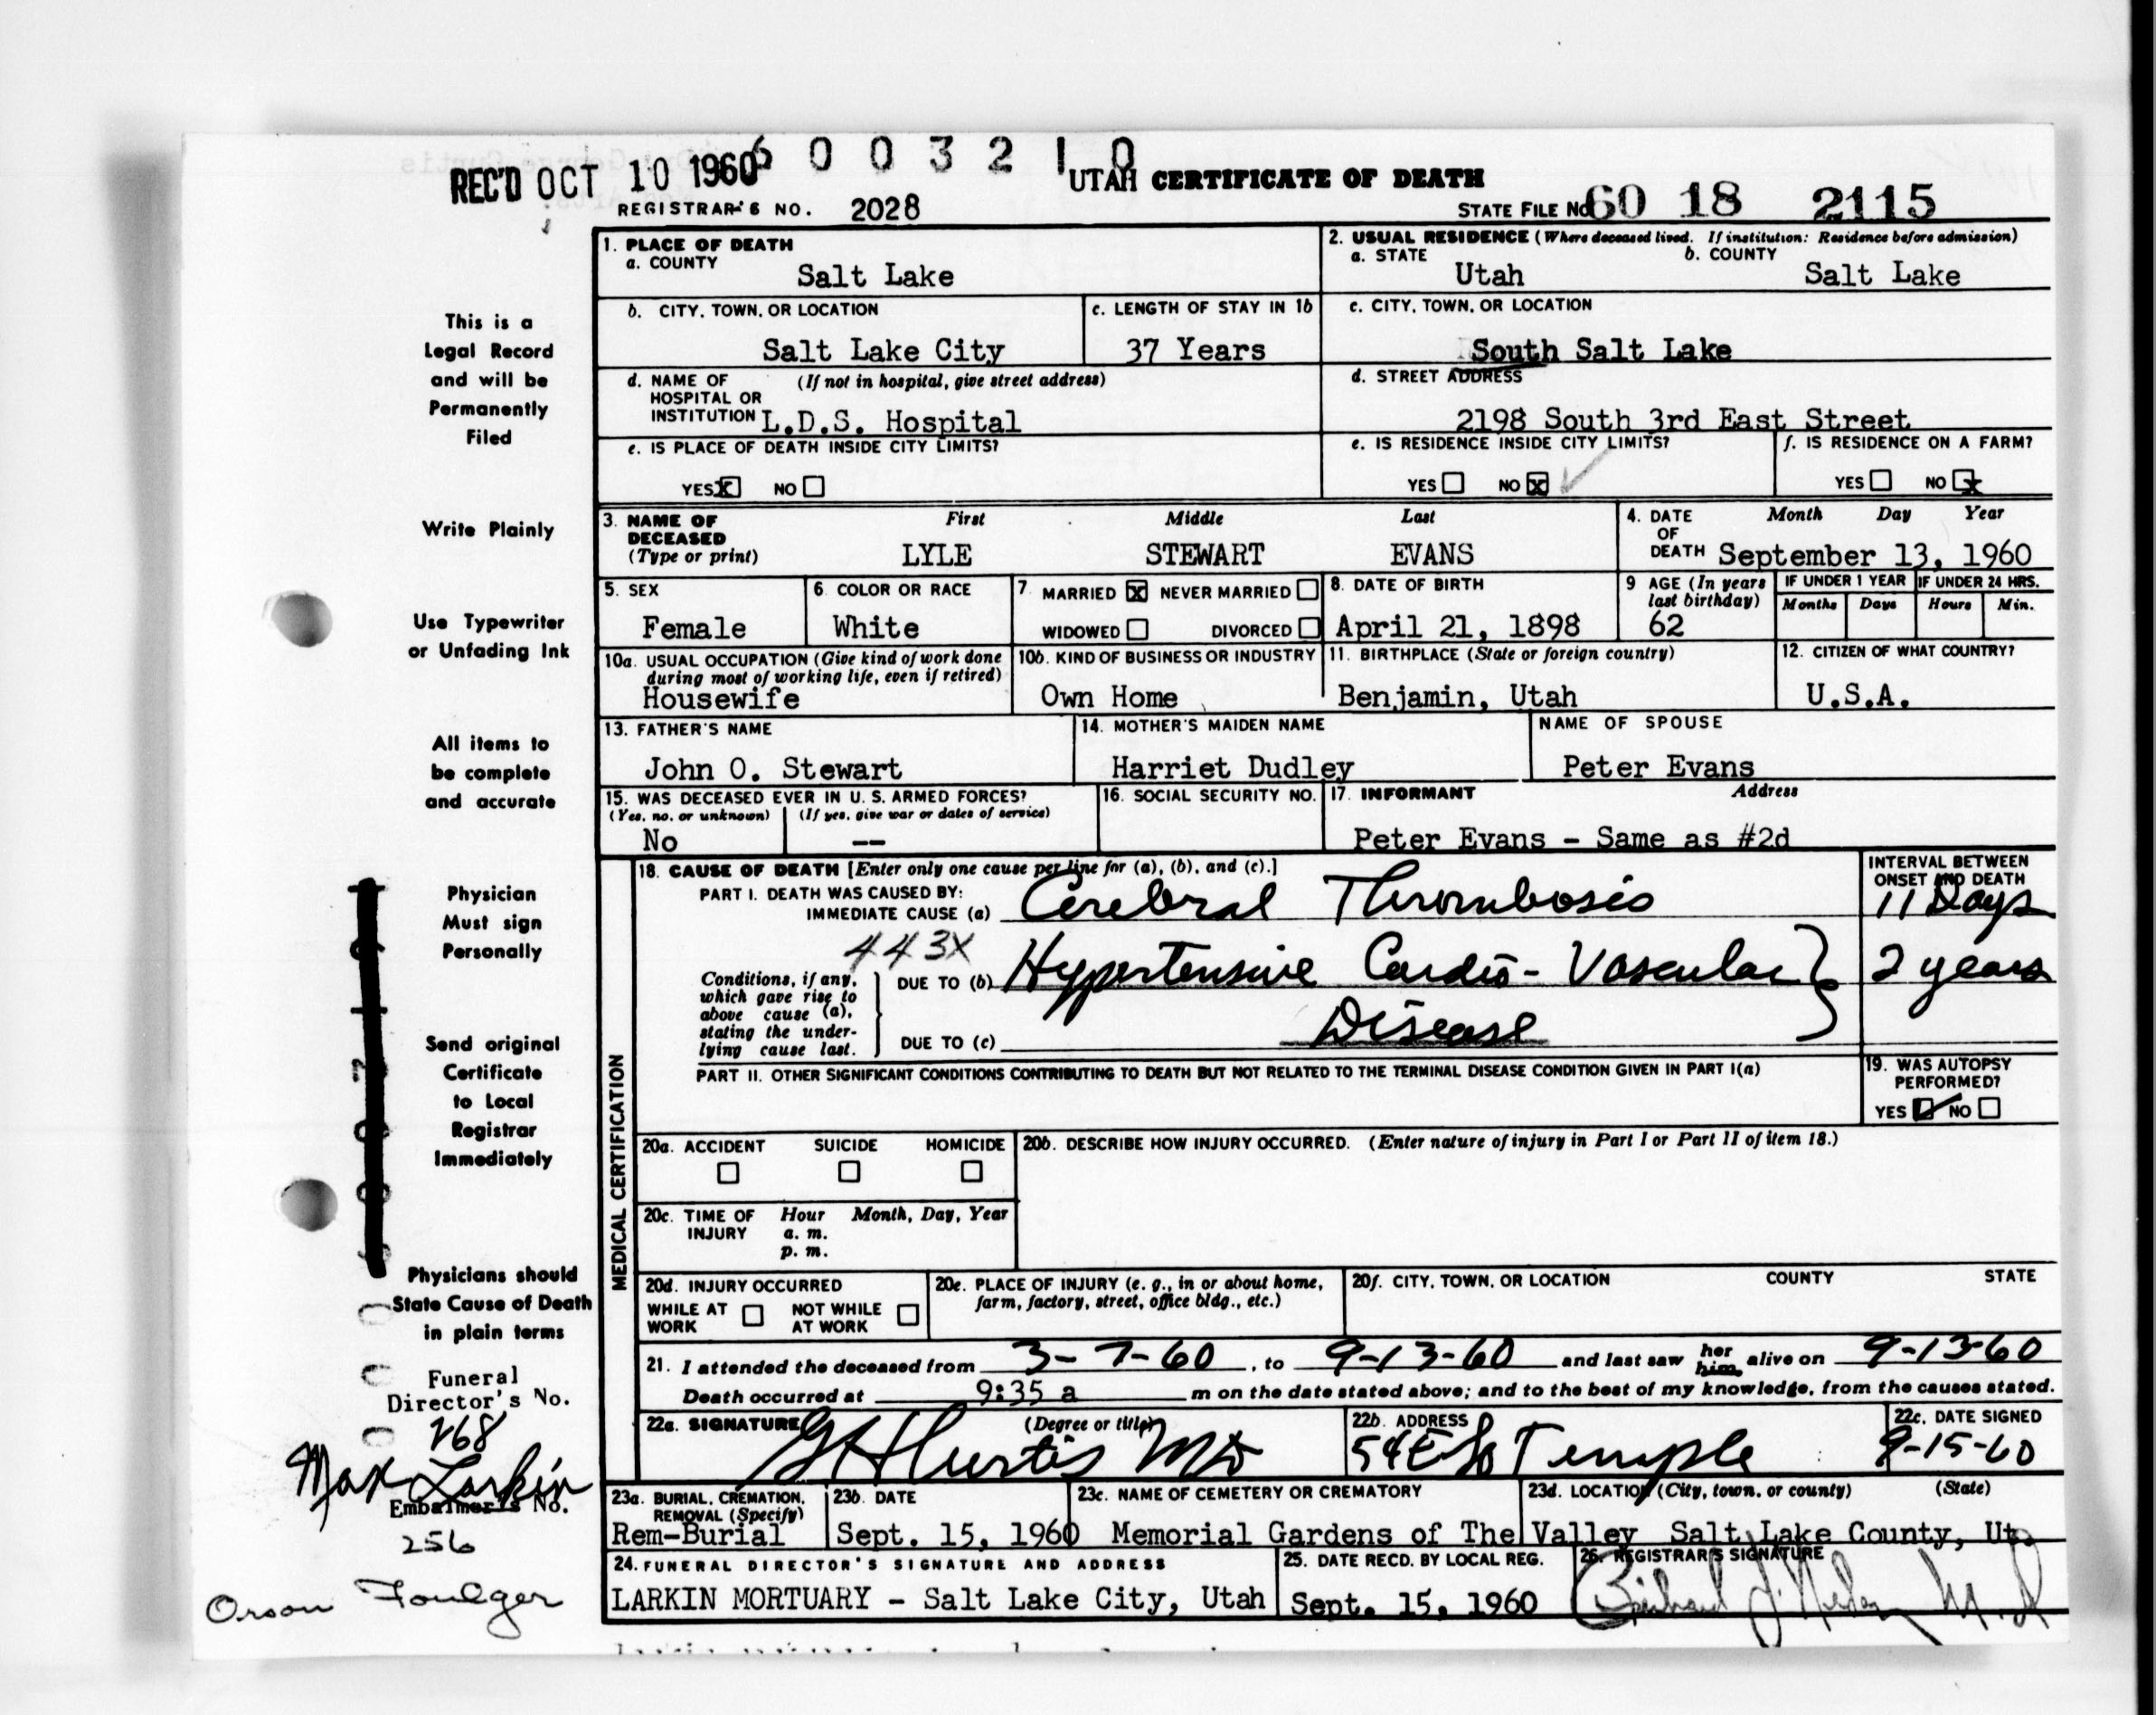 6 0 0 3 2 1 0
REC'D OCT 10 1960
UTAH CERTIFICATE OF DEATH
REGISTRAR'S NO. 2028
STATE FILE No. 60 18 2115
1. PLACE OF DEATH
a. COUNTY
Salt Lake
2. USUAL RESIDENCE (Where deceased lived. If institution: Residence before admission)
a. STATE
Utah
b. COUNTY
Salt Lake
b. CITY, TOWN, OR LOCATION
Salt Lake City
c. LENGTH OF STAY IN 1b
37 Years
c. CITY, TOWN, OR LOCATION
South Salt Lake
d. NAME OF (If not in hospital, give street address)
HOSPITAL OR
INSTITUTION L.D.S. Hospital
d. STREET ADDRESS
2198 South 3rd East Street
e. IS PLACE OF DEATH INSIDE CITY LIMITS?
YES X NO
e. IS RESIDENCE INSIDE CITY LIMITS?
YES NO X
f. IS RESIDENCE ON A FARM?
YES NO X
3. NAME OF DECEASED
(Type or print)
First
LYLE
Middle
STEWART
Last
EVANS
4. DATE OF DEATH
Month Day Year
September 13, 1960
5. SEX
Female
6. COLOR OR RACE
White
7. MARRIED X NEVER MARRIED
WIDOWED DIVORCED
8. DATE OF BIRTH
April 21, 1898
9 AGE (In years last birthday)
62
IF UNDER 1 YEAR
Months Days
IF UNDER 24 HRS.
Hours Min.
10a. USUAL OCCUPATION (Give kind of work done during most of working life, even if retired)
Housewife
10b. KIND OF BUSINESS OR INDUSTRY
Own Home
11. BIRTHPLACE (State or foreign country)
Benjamin, Utah
12. CITIZEN OF WHAT COUNTRY?
U.S.A.
13. FATHER'S NAME
John O. Stewart
14. MOTHER'S MAIDEN NAME
Harriet Dudley
NAME OF SPOUSE
Peter Evans
15. WAS DECEASED EVER IN U. S. ARMED FORCES?
(Yes, no, or unknown) (If yes, give war or dates of service)
No --
16. SOCIAL SECURITY NO.
17. INFORMANT Address
Peter Evans - Same as #2d
MEDICAL CERTIFICATION
18. CAUSE OF DEATH [Enter only one cause per line for (a), (b), and (c).]
PART I. DEATH WAS CAUSED BY:
IMMEDIATE CAUSE (a) Cerebral Thrombosis
INTERVAL BETWEEN ONSET AND DEATH
11 Days
443X
Conditions, if any, which gave rise to above cause (a), stating the underlying cause last.
DUE TO (b) Hypertensive Cardio-Vascular
2 years
DUE TO (c) Disease
PART II. OTHER SIGNIFICANT CONDITIONS CONTRIBUTING TO DEATH BUT NOT RELATED TO THE TERMINAL DISEASE CONDITION GIVEN IN PART I(a)
19. WAS AUTOPSY PERFORMED?
YES NO
20a. ACCIDENT SUICIDE HOMICIDE
20b. DESCRIBE HOW INJURY OCCURRED. (Enter nature of injury in Part I or Part II of item 18.)
20c. TIME OF INJURY
Hour Month, Day, Year
a. m.
p. m.
20d. INJURY OCCURRED
WHILE AT WORK NOT WHILE AT WORK
20e. PLACE OF INJURY (e. g., in or about home, farm, factory, street, office bldg., etc.)
20f. CITY, TOWN, OR LOCATION COUNTY STATE
21. I attended the deceased from 3-7-60, to 9-13-60 and last saw her him alive on 9-13-60
Death occurred at 9:35 a m on the date stated above; and to the best of my knowledge, from the causes stated.
22a. SIGNATURE (Degree or title)
MD
22b. ADDRESS
54 E So Temple
22c. DATE SIGNED
9-15-60
23a. BURIAL, CREMATION, REMOVAL (Specify)
Rem-Burial
23b. DATE
Sept. 15, 1960
23c. NAME OF CEMETERY OR CREMATORY
Memorial Gardens of The Valley
23d. LOCATION (City, town, or county) (State)
Salt Lake County, Ut.
24. FUNERAL DIRECTOR'S SIGNATURE AND ADDRESS
LARKIN MORTUARY - Salt Lake City, Utah
25. DATE RECD. BY LOCAL REG.
Sept. 15, 1960
26. REGISTRAR'S SIGNATURE
This is a
Legal Record
and will be
Permanently
Filed
Write Plainly
Use Typewriter
or Unfading Ink
All items to
be complete
and accurate
Physician
Must sign
Personally
Send original
Certificate
to Local
Registrar
Immediately
Physicians should
State Cause of Death
in plain terms
Funeral
Director's No.
268
Max Larkin
Embalmer's No.
256
Orson Foulger